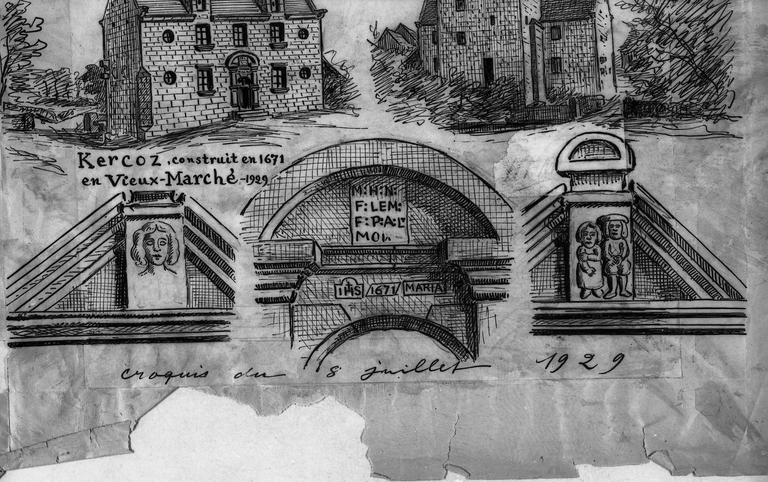 Kercoz, construit en 1671
en Vieux-Marché.-1929
M:H:N:
F:LEM:
F:P:AL
MOI.
IHS/1671/MARIA
croquis du 8 juillet 1929